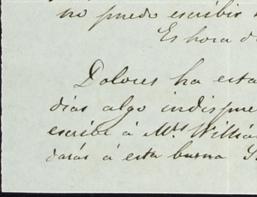 no puedo escribir
Es hora d
Dolores ha esta
dias algo indispue
escribe á Mrs Willia
darás á esta buena S